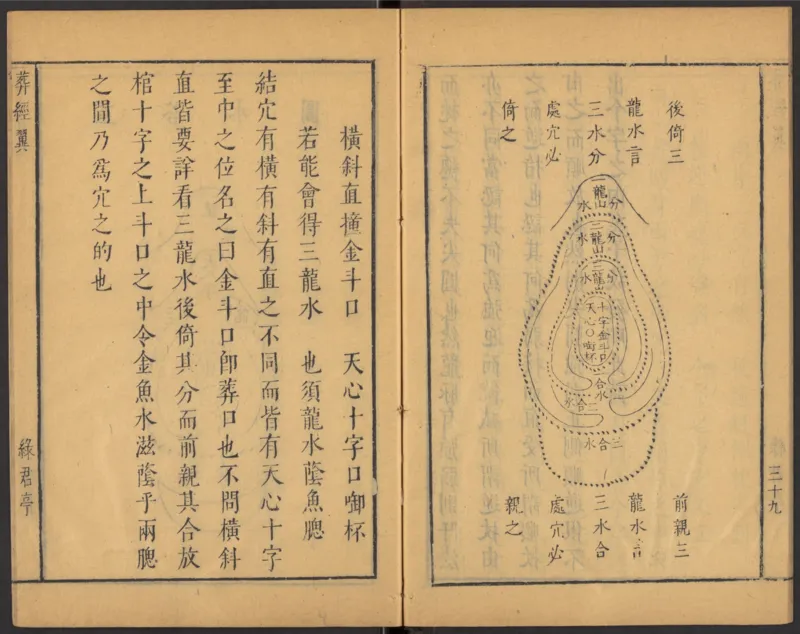 三十九
後倚三
龍水言
三水分
處穴必
倚之
分龍山水
分二龍山水
分三龍山水
十字金斗口
天心〇啣杯
合水
二合水
三合水
前親三
龍水言
三水合
處穴必
親之
橫斜直撞金斗口　天心十字口啣杯
若能會得三龍水　也須龍水蔭魚腮
結穴有橫有斜有直之不同而皆有天心十字
至中之位名之曰金斗口卽葬口也不問橫斜
直皆要詳看三龍水後倚其分而前親其合放
棺十字之上斗口之中令金魚水滋蔭乎兩腮
之間乃爲穴之的也
葬經翼
綠君亭